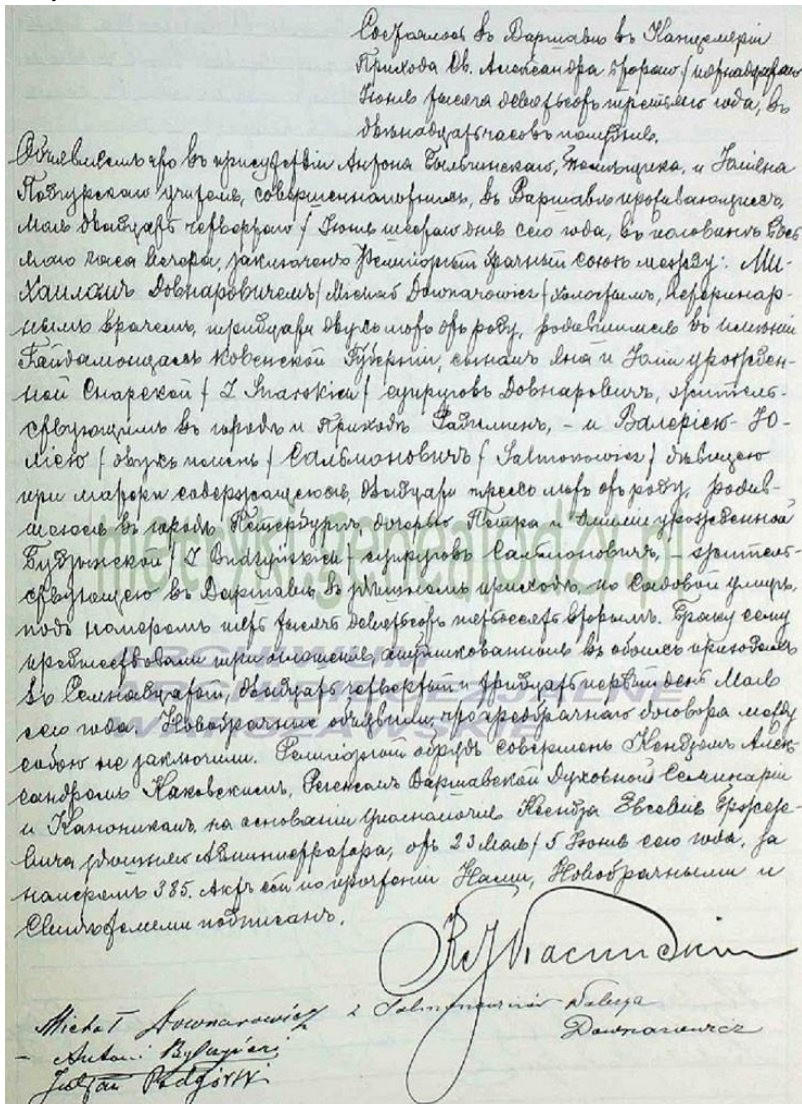 Состоялось въ Варшавѣ въ Канцеляріи
Прихода Св. Александра втораго / пятнадцатаго
Іюня тысяча девятьсотъ третьяго года, въ
двѣнадцать часовъ пополудни.
Объявляемъ что въ присутствіи Антона Быльчинскаго, помѣщика, и Юліяна
Подгурскаго учителя, совершеннолѣтнихъ, въ Варшавѣ проживающихъ,
Мая двадцать четвертаго / Іюня шестаго дня сего года, въ половинѣ вось
маго часа вечера, заключенъ Религіозный брачный союзъ между: Ми-
хаиломъ Довнаровичемъ / Michał Downarowicz / холостымъ, ветеринар-
нымъ врачемъ, тридцати двухъ лѣтъ отъ роду, родившимся въ имѣніи
Гайдамонцахъ Ковенской Губерніи, сыномъ Яна и Юліи урожден-
ной Снарской / Z Snarskich / супруговъ Довнаровичъ, житель-
ствующимъ въ городѣ и Приходѣ – и Валеріею-Ю-
ліею / двухъ именъ / Сальмоновичъ / Salmonowicz / дѣвицею
при матери содержащеюся, двадцати трехъ лѣтъ отъ роду, родив-
шеюся въ городѣ Петербургѣ, дочерью Петра и Эмиліи урожденной
Будзынской / Z Budzyńskich / супруговъ Сальмоновичъ, – житель-
ствующею въ Варшавѣ въ здѣшнемъ приходѣ, по Садовой улицѣ,
подъ номеромъ пять тысячъ девятьсотъ пятьдесятъ вторымъ. Браку сему
предшествовали три оглашенія опубликованныя въ обоихъ приходахъ
въ Семнадцатый, двадцать четвертый и тридцать первый день Мая
сего года. Новобрачные объявили, что предбрачнаго договора между
собою не заключили. Религіозный обрядъ совершенъ Ксендзомъ Алек-
сандромъ Каковскимъ, Регенсомъ Варшавской Духовной Семинаріи
и Каноникомъ, на основаніи уполномочія Ксендза Евсевія Брзезе-
вича здѣшняго Администратора, отъ 23 Мая / 5 Іюня сего года, за
номеромъ 385. Актъ сей по прочтеніи Нами, Новобрачными и
Свидѣтелями подписанъ.
Michał Downarowicz z Salmonowiczów Walerya
Downarowicz
Antoni
Julian Podgórski
metryki.genealodzy.pl
ARCHIWUM
ARCHIDIECEZJALNE
WARSZAWSKIE